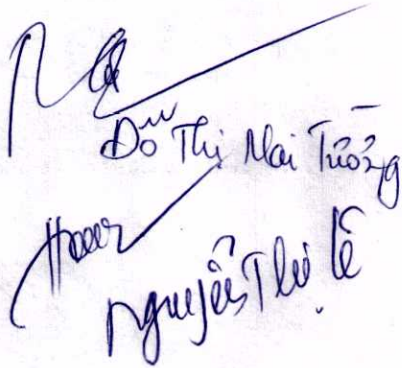 Đỗ Thị Mai Tường
Nguyễn Thị Lê